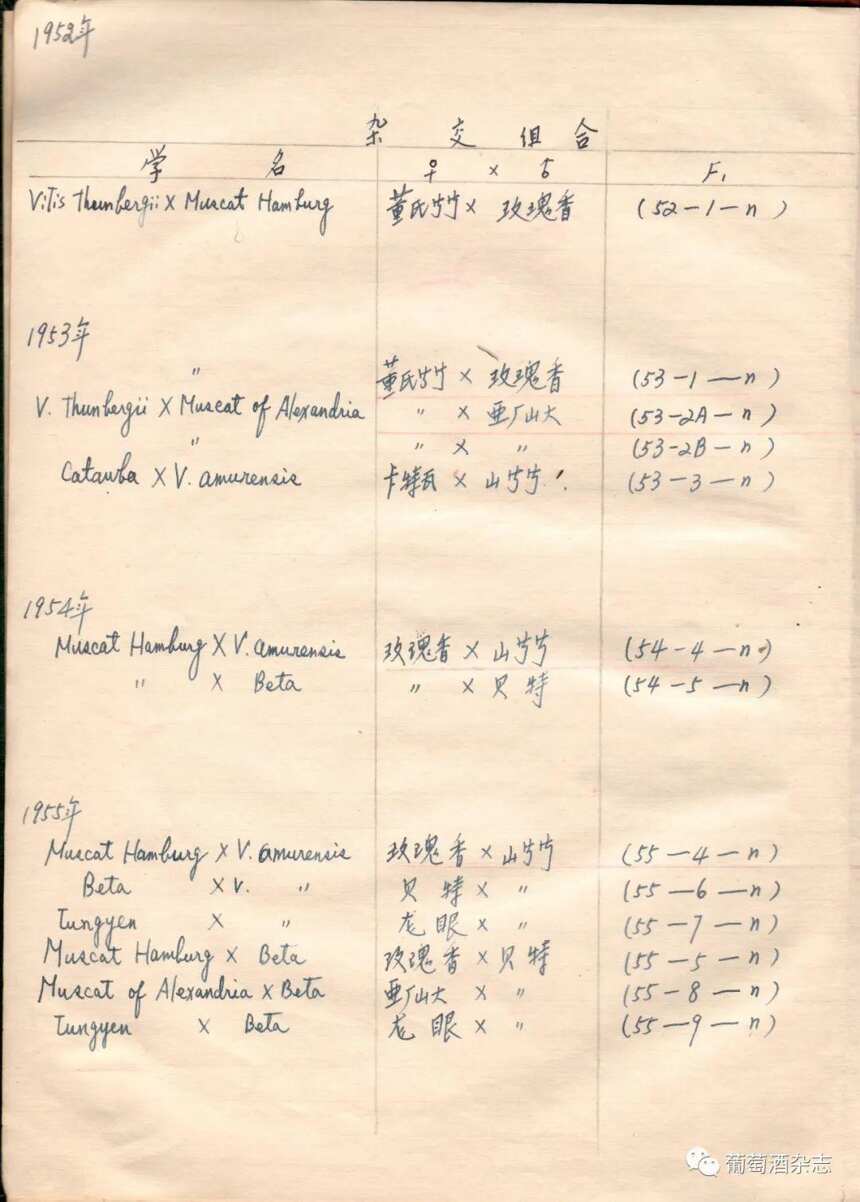 1952年
杂 交 组 合
学 名 ♀ × ♂ F₁
Vitis Thunbergii × Muscat Hamburg 董氏 × 玫瑰香 (52-1-n)
1953年
〃 董氏 × 玫瑰香 (53-1-n)
V. Thunbergii × Muscat of Alexandria 〃 × 亚厂山大 (53-2A-n)
〃 〃 × 〃 (53-2B-n)
Catawba × V. amurensis 卡特瓦 × 山 (53-3-n)
1954年
Muscat Hamburg × V. amurensis 玫瑰香 × 山 (54-4-n)
〃 × Beta 〃 × 贝特 (54-5-n)
1955年
Muscat Hamburg × V. amurensis 玫瑰香 × 山 (55-4-n)
Beta × V. 〃 贝特 × 〃 (55-6-n)
Lungyen × 〃 龙眼 × 〃 (55-7-n)
Muscat Hamburg × Beta 玫瑰香 × 贝特 (55-5-n)
Muscat of Alexandria × Beta 亚厂山大 × 〃 (55-8-n)
Lungyen × Beta 龙眼 × 〃 (55-9-n)
葡萄酒杂志